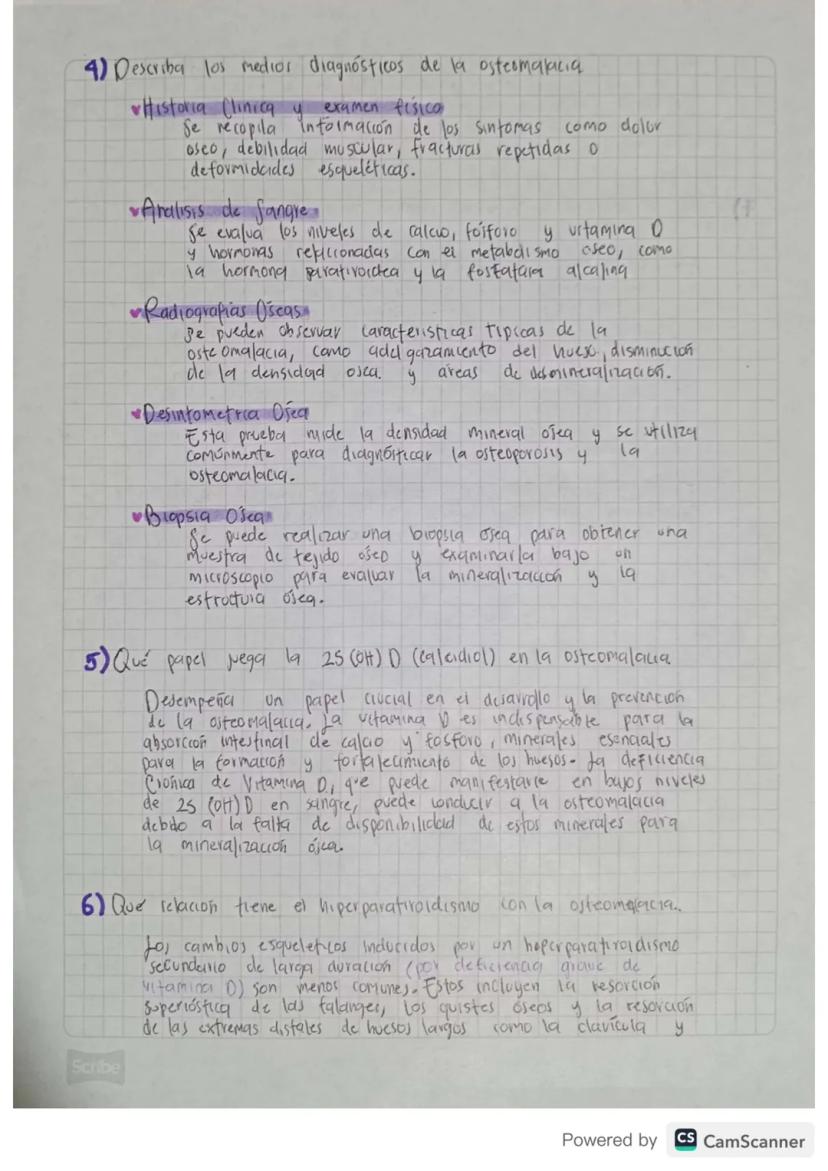 4) Describa los medios diagnósticos de la osteomalacia
Historia Clinica y examen físico
Se recopila información de los sintomas como dolor
oseo, debilidad muscular, fracturas repetidas o
deformidades esqueléticas.
Analisis de Sangre
Se evalua los niveles de calcio, fósforo y vitamina D
y hormonas relacionadas con el metabolismo oseo, como
la hormona paratiroidea y la fosfatasa alcalina
Radiografias Óseas
Se pueden observar caracteristicas tipicas de la
osteomalacia, como adelgazamiento del hueso, disminución
de la densidad osea. y áreas de desmineralización.
Desintometrica Osea
Esta prueba mide la densidad mineral osea y se utiliza
comúnmente para diagnósticar la osteoporosis y la
osteomalacia.
Biopsia Osea
Se puede realizar una biopsia osea para obtener una
muestra de tejido óseo y examinarla bajo un
microscopio para evaluar la mineralización y la
estructura ósea.
5) Qué papel juega la 25 (OH) D (calcidiol) en la osteomalacia
Desempeña un papel crucial en el desarrollo y la prevención
de la osteomalacia. La vitamina D es indispensable para la
absorción intestinal de calcio y fosforo, minerales esenciales
para la formación y fortalecimiento de los huesos. La deficiencia
Crónica de Vitamina D, que puede manifestarse en bajos niveles
de 25 (OH) D en sangre, puede conducir a la osteomalacia
debdo a la falta de disponibilidad de estos minerales para
la mineralización ósea.
6) Qué relacion tiene el hiperparatiroidismo con la osteomalacia.
Los cambios esqueleticos inducidos por un heperparatiroidismo
secundario de larga duración (por deficiencia grave de
vitamina D) son menos comunes. Estos incluyen la resorción
superióstica de las falanges, los quistes óseos y la resorción
de las extremas distales de huesos largos como la clavícula y
Scribe
Powered by CS CamScanner